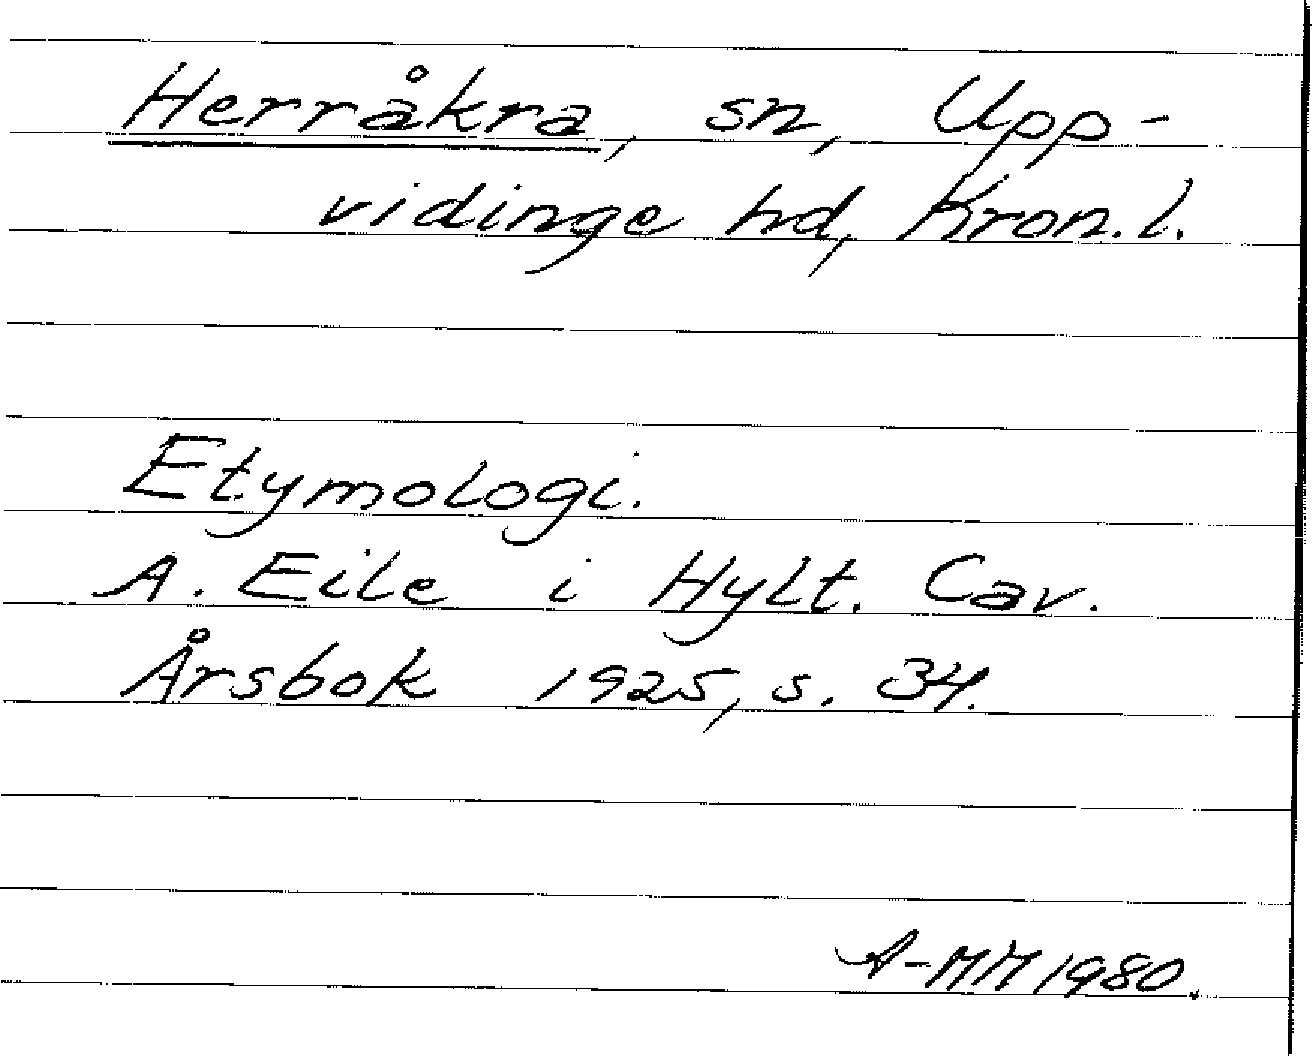 Herråkra, sn, Upp-
vidinge hd, Kron.l.
Etymologi.
A. Eile i Hylt. Cav.
Årsbok 1925, s. 34.
A-MM 1980.